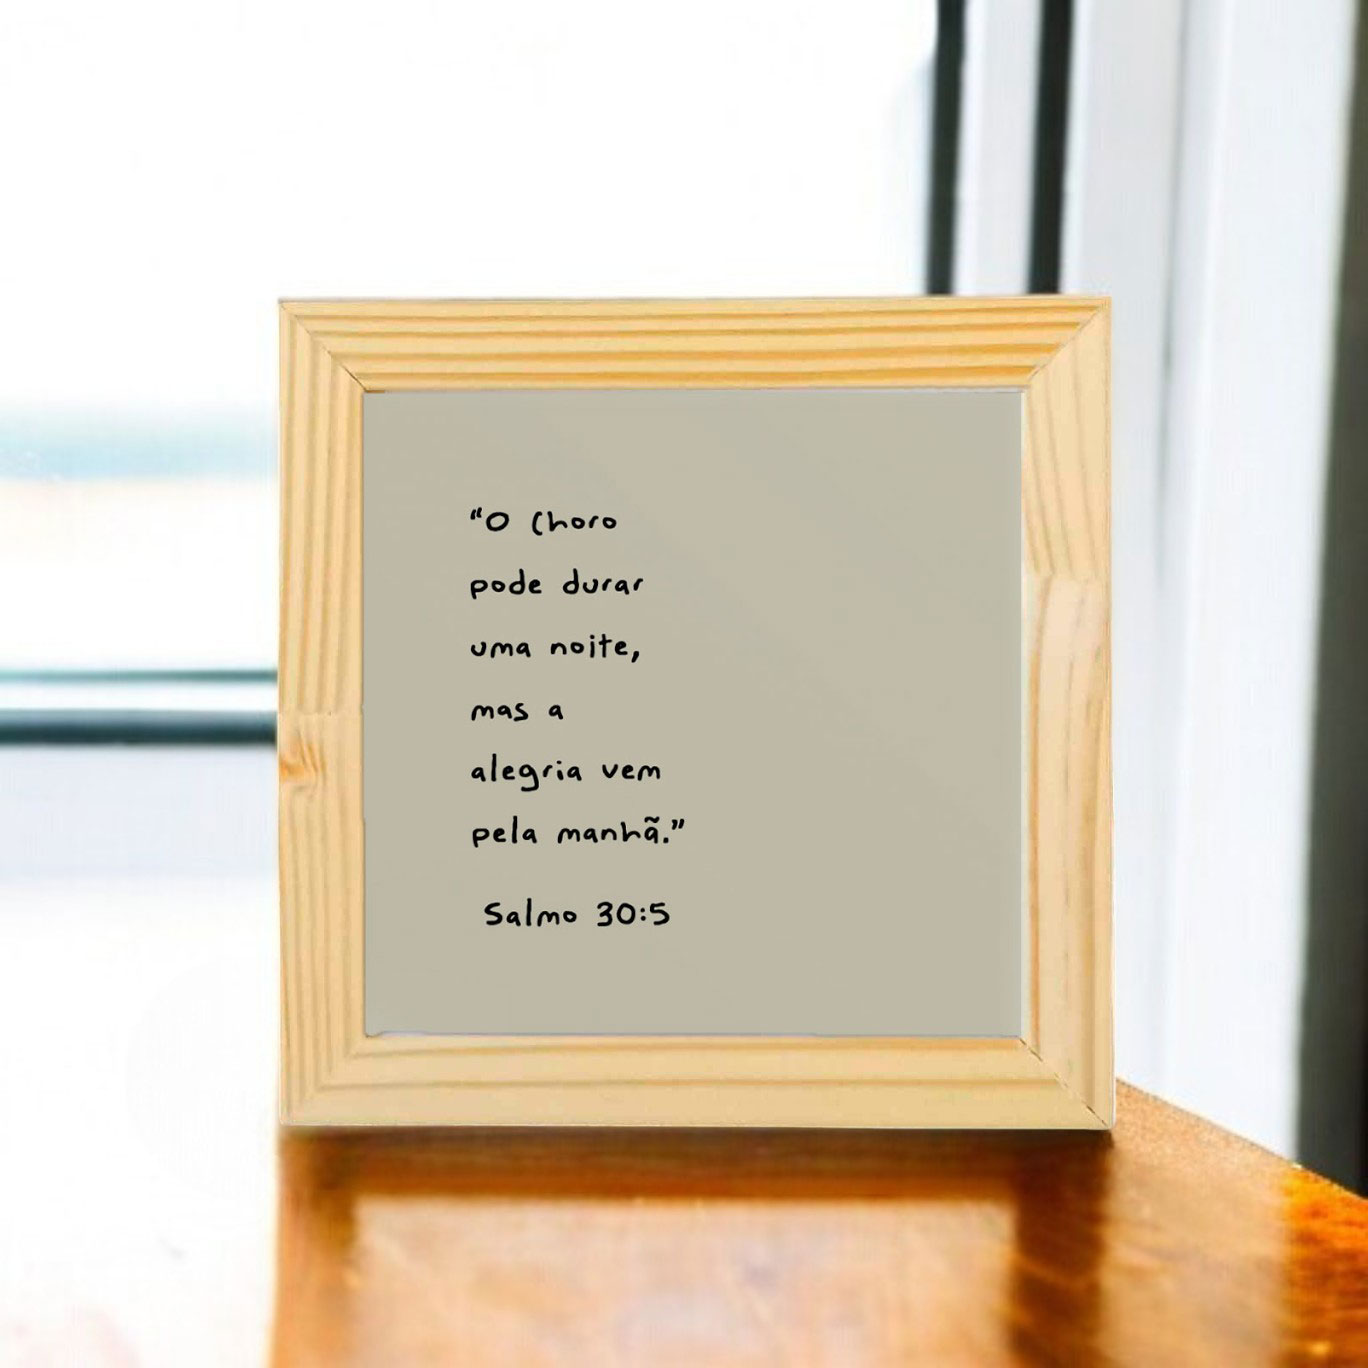 “O Choro
pode durar
uma noite,
mas a
alegria vem
pela manhã.”
Salmo 30:5